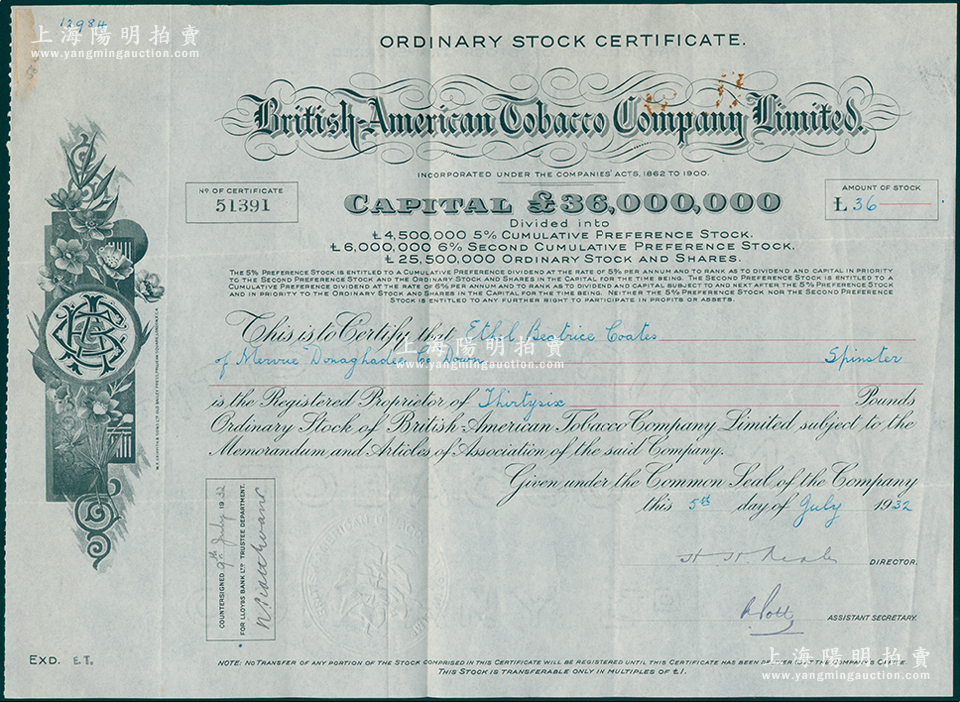 12984
上海陽明拍賣
www.yangmingauction.com
ORDINARY STOCK CERTIFICATE.
British-American Tobacco Company Limited.
INCORPORATED UNDER THE COMPANIES' ACTS, 1862 TO 1900.
No OF CERTIFICATE
51391
AMOUNT OF STOCK
£36
CAPITAL £36,000,000
Divided into
£4,500,000 5% CUMULATIVE PREFERENCE STOCK.
£6,000,000 6% SECOND CUMULATIVE PREFERENCE STOCK.
£25,500,000 ORDINARY STOCK AND SHARES.
THE 5% PREFERENCE STOCK IS ENTITLED TO A CUMULATIVE PREFERENCE DIVIDEND AT THE RATE OF 5% PER ANNUM AND TO RANK AS TO DIVIDEND AND CAPITAL IN PRIORITY
TO THE SECOND PREFERENCE STOCK AND THE ORDINARY STOCK AND SHARES IN THE CAPITAL FOR THE TIME BEING. THE SECOND PREFERENCE STOCK IS ENTITLED TO A
CUMULATIVE PREFERENCE DIVIDEND AT THE RATE OF 6% PER ANNUM AND TO RANK AS TO DIVIDEND AND CAPITAL SUBJECT TO AND NEXT AFTER THE 5% PREFERENCE STOCK
AND IN PRIORITY TO THE ORDINARY STOCK AND SHARES IN THE CAPITAL FOR THE TIME BEING. NEITHER THE 5% PREFERENCE STOCK NOR THE SECOND PREFERENCE
STOCK IS ENTITLED TO ANY FURTHER RIGHT TO PARTICIPATE IN PROFITS OR ASSETS.
This is to Certify that Ethel Beatrice Coates
of Mervue Donaghadee, Co. Down Spinster
上海陽明拍賣
www.yangmingauction.com
is the Registered Proprietor of Thirtysix Pounds
Ordinary Stock of British-American Tobacco Company Limited subject to the
Memorandum and Articles of Association of the said Company.
Given under the Common Seal of the Company
this 5th day of July 1932
DIRECTOR.
ASSISTANT SECRETARY.
COUNTERSIGNED 9th July 1932
FOR LLOYDS BANK LTD TRUSTEE DEPARTMENT.
EXD. E.T.
NOTE: NO TRANSFER OF ANY PORTION OF THE STOCK COMPRISED IN THIS CERTIFICATE WILL BE REGISTERED UNTIL THIS CERTIFICATE HAS BEEN THE COMPANY'S OFFICE.
THIS STOCK IS TRANSFERABLE ONLY IN MULTIPLES OF £1.
上海陽明拍賣
www.yangmingauction.com